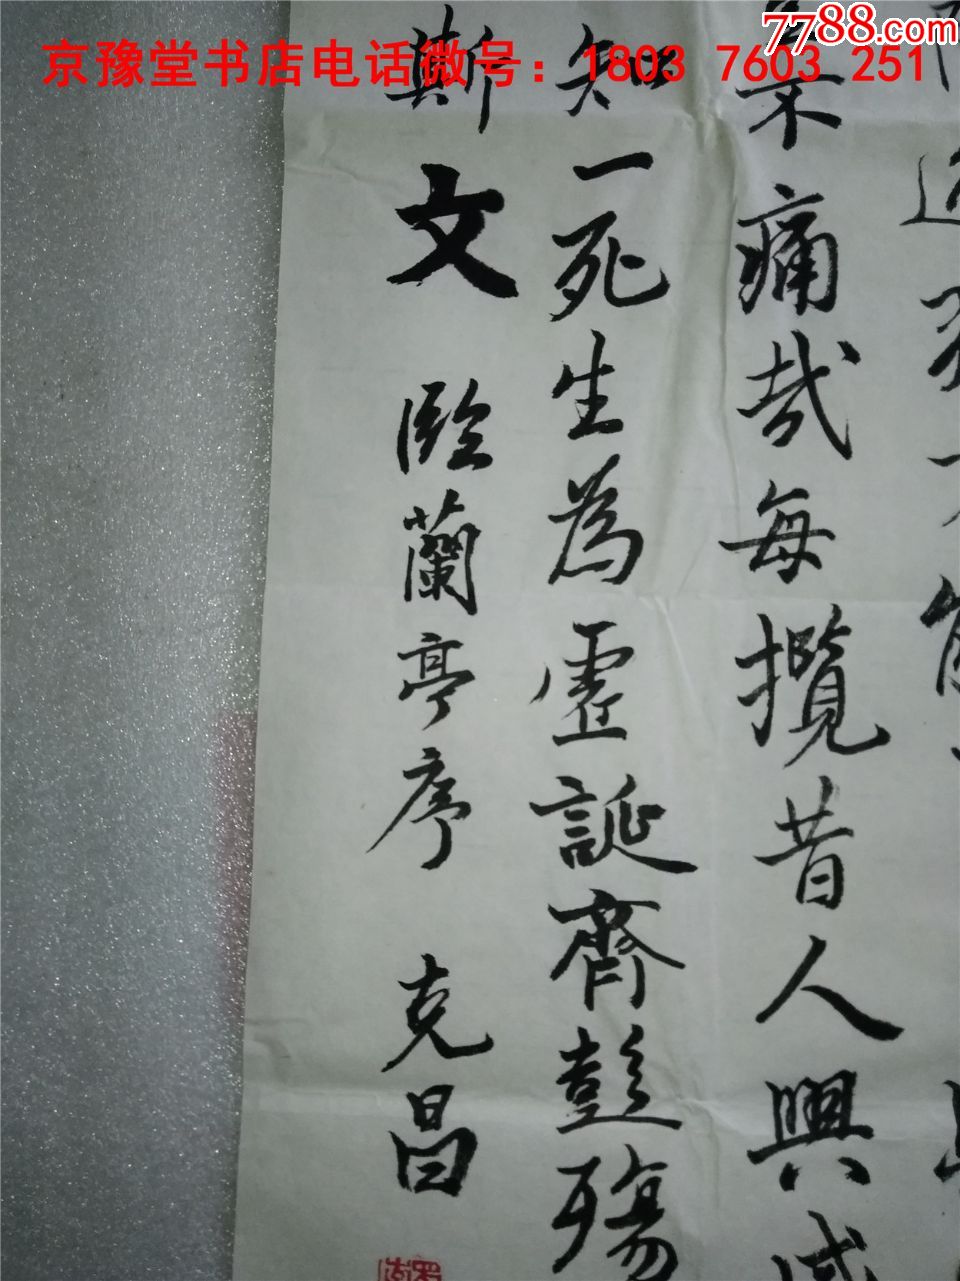 7788.com
京豫堂书店电话微号：1803 7603 251
不痛哉每攬昔人興感
知一死生為虛誕齊彭殤
斯文 臨蘭亭序 克昌